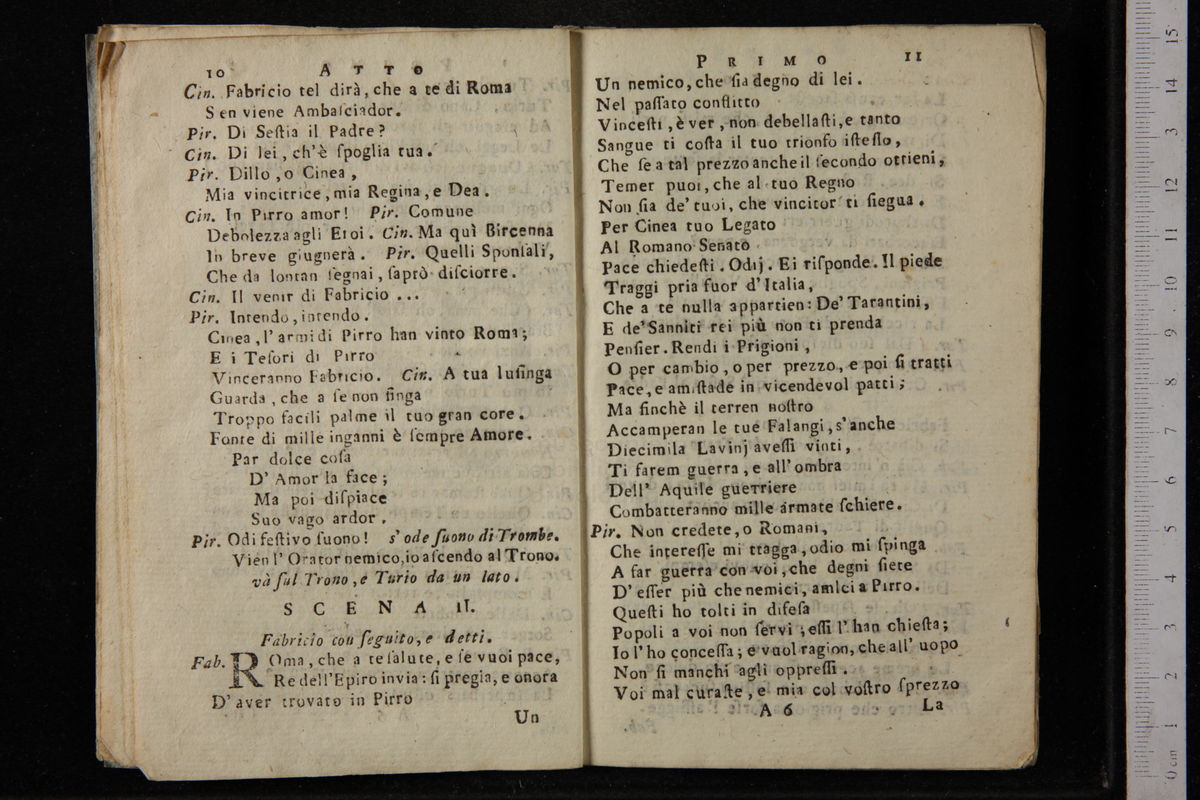 10 ATTO
Cin. Fabricio tel dirà, che a te di Roma
Sen viene Ambaſciador.
Pir. Di Seſtia il Padre?
Cin. Di lei, ch'è ſpoglia tua.
Pir. Dillo, o Cinea,
Mia vincitrice, mia Regina, e Dea.
Cin. In Pirro amor! Pir. Comune
Debolezza agli Eroi. Cin. Ma quì Bircenna
In breve giugnerà. Pir. Quelli Sponſali,
Che da lontan ſegnai, ſaprò diſciorre.
Cin. Il venir di Fabricio ...
Pir. Intendo, intendo.
Cinea, l'armi di Pirro han vinto Roma;
E i Teſori di Pirro
Vinceranno Fabricio. Cin. A tua luſinga
Guarda, che a ſe non finga
Troppo facili palme il tuo gran core.
Fonte di mille inganni è ſempre Amore.
Par dolce coſa
D'Amor la face;
Ma poi diſpiace
Suo vago ardor.
Pir. Odi feſtivo ſuono! s'ode ſuono di Trombe.
Vien l'Orator nemico, io aſcendo al Trono.
và ſul Trono, e Turio da un lato.
SCENA II.
Fabricio con ſeguito, e detti.
Fab. ROma, che a te ſalute, e ſe vuoi pace,
Re dell'Epiro invia: ſi pregia, e onora
D'aver trovato in Pirro
Un
PRIMO 11
Un nemico, che ſia degno di lei.
Nel paſſato conflitto
Vinceſti, è ver, non debellaſti, e tanto
Sangue ti coſta il tuo trionfo iſteſſo,
Che ſe a tal prezzo anche il ſecondo ottieni,
Temer puoi, che al tuo Regno
Non ſia de' tuoi, che vincitor ti ſiegua.
Per Cinea tuo Legato
Al Romano Senato
Pace chiedeſti. Odij. Ei riſponde. Il piede
Traggi pria fuor d'Italia,
Che a te nulla appartien: De' Tarantini,
E de' Sanniti rei più non ti prenda
Penſier. Rendi i Prigioni,
O per cambio, o per prezzo, e poi ſi tratti
Pace, e amiſtade in vicendevol patti;
Ma finchè il terren noſtro
Accamperan le tue Falangi, s'anche
Diecimila Lavinj aveſſi vinti,
Ti farem guerra, e all'ombra
Dell' Aquile guerriere
Combatteranno mille armate ſchiere.
Pir. Non credete, o Romani,
Che intereſſe mi ttagga, odio mi ſpinga
A far guerra con voi, che degni ſiete
D'eſſer più che nemici, amici a Pirro.
Queſti ho tolti in difeſa
Popoli a voi non ſervi; eſſi l'han chieſta;
Io l'ho conceſſa; e vuol ragion, che all'uopo
Non ſi manchi agli oppreſſi.
Voi mal curaſte, e mia col voſtro ſprezzo
A 6 La